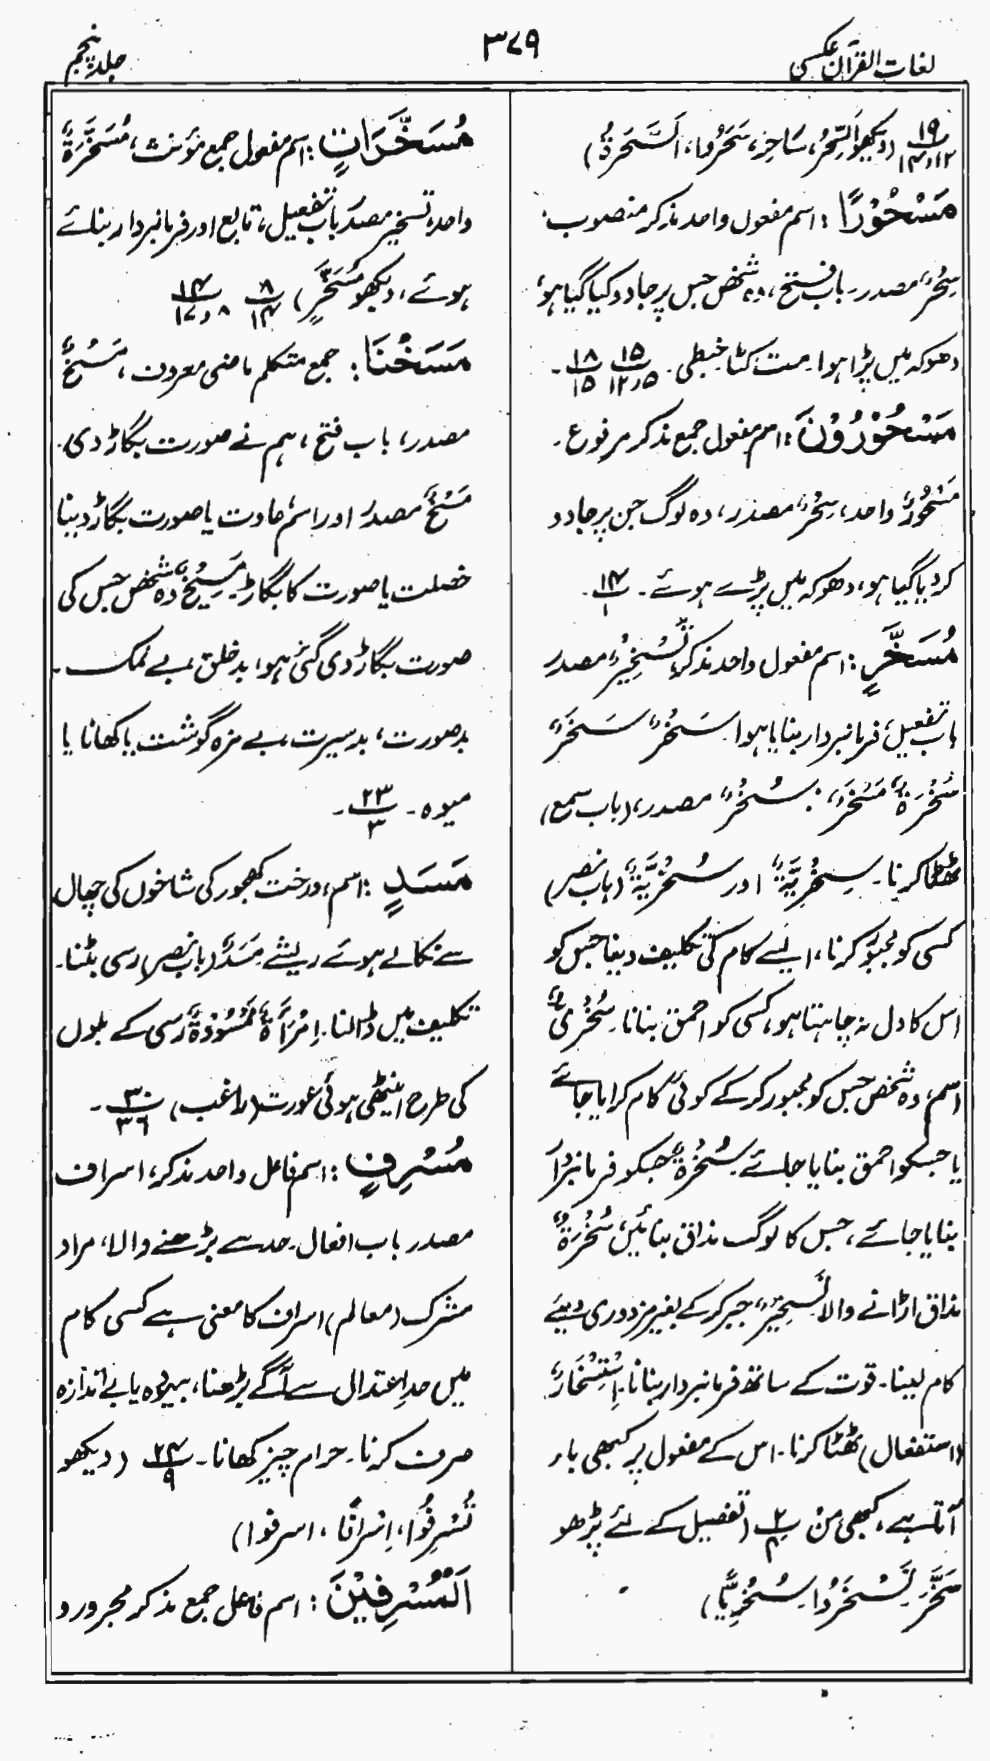 لغات القرآن عکسی
۳۷۹
جلد پنجم
۱۹/۱۲و۱۴ (دیکھو اَلسِّحْرُ، سَاحِرٌ، سَحَرُوا، اَلسَّحَرَةُ)
مَسْحُوْرًا: اسم مفعول واحد مذکر منصوب
سِحْرٌ مصدر۔ باب فتح، وہ شخص جس پر جادو کیا گیا ہو،
دھوکہ میں پڑا ہوا۔ مت کٹا خبطی۔ ۱۵/۵و۱۲ ۱۸/۱۵۔
مَسْحُوْرُوْنَ: اسم مفعول جمع مذکر مرفوع۔
مَسْحُوْرٌ واحد، سِحْرٌ مصدر، وہ لوگ جن پر جادو
کر دیا گیا ہو، دھوکہ میں پڑے ہوئے۔ ۱۴/۱۔
مُسَخَّرٍ: اسم مفعول واحد مذکر، تَسْخِيْرٌ مصدر
باب تفعیل، فرمانبردار بنایا ہوا۔ سَخْرٌ سَخَرٌ
سُخْرَةٌ مَسْخَرٌ، سُخْرٌ مصدر، (باب سمع)
ٹھٹھا کرنا۔ سِخْرِيَّةٌ اور سُخْرِيَّةٌ (باب نصر)
کسی کو مجبور کرنا، ایسے کام کی تکلیف دینا جس کو
اس کا دل نہ چاہتا ہو، کسی کو احمق بنانا۔ سُخْرِىٌّ
اسم، وہ شخص جس کو مجبور کر کے کوئی کام کرایا جائے
یا جسکو احمق بنایا جائے سُخْرَةٌ جسکو فرمانبردار
بنایا جائے، جس کا لوگ مذاق بنائیں، سُخَرَةٌ
مذاق اڑانے والا تَسْخِيْرٌ، جبر کر کے بغیر مزدوری دیئے
کام لینا۔ قوت کے ساتھ فرمانبردار بنانا۔ اِسْتِسْخَارٌ،
(استفعال) ٹھٹا کرنا۔ اس کے مفعول پر کبھی باء
آتا ہے، کبھی من ۲/۴ (تفصیل کے لئے پڑھو
سَخَّرَ تَسْخَرُوا سُخْرِيًّا)
مُسَخَّرَاتٍ: اسم مفعول جمع مؤنث، مُسَخَّرَةٌ
واحد، تسخیر مصدر باب تفعیل، تابع اور فرمانبردار بنائے
ہوئے، دیکھو مُسَخَّرٍ) ۸/۱۴ ۱۴/۸و۱۷
مَسَخْنَا: جمع متکلم ماضی معروف، مَسْخٌ
مصدر، باب فتح، ہم نے صورت بگاڑ دی۔
مَسْخٌ مصدر اور اسم، عادت یا صورت بگاڑ دینا
خصلت یا صورت کا بگاڑ۔ مَسِيْخٌ وہ شخص جس کی
صورت بگاڑ دی گئی ہو، بدخلق، بے نمک۔
بدصورت، بدسیرت، بے مزہ گوشت یا کھانا یا
میوہ۔ ۲۳/۳۔
مَسَدٍ: اسم، درخت کھجور کی شاخوں کی چھال
سے نکالے ہوئے ریشے۔ مَسْدٌ (باب نصر) رسی بٹنا۔
تکلیف میں ڈالنا۔ اِمْرَأَةٌ مَمْسُوْدَةٌ رسی کے بلوں
کی طرح اینٹھی ہوئی عورت (راغب) ۳۰/۳۶۔
مُسْرِفٍ: اسم فاعل واحد مذکر، اسراف
مصدر باب افعال۔ حد سے بڑھنے والا، مراد
مشرک (معالم) اسراف کا معنی ہے کسی کام
میں حد اعتدال سے آگے بڑھنا، بیہودہ یا بے اندازہ
صرف کرنا۔ حرام چیز کھانا۔ ۲۴/۹ (دیکھو
تُسْرِفُوا، اِسْرَافًا، اسرفوا)
اَلْمُسْرِفِيْنَ: اسم فاعل جمع مذکر مجرور و